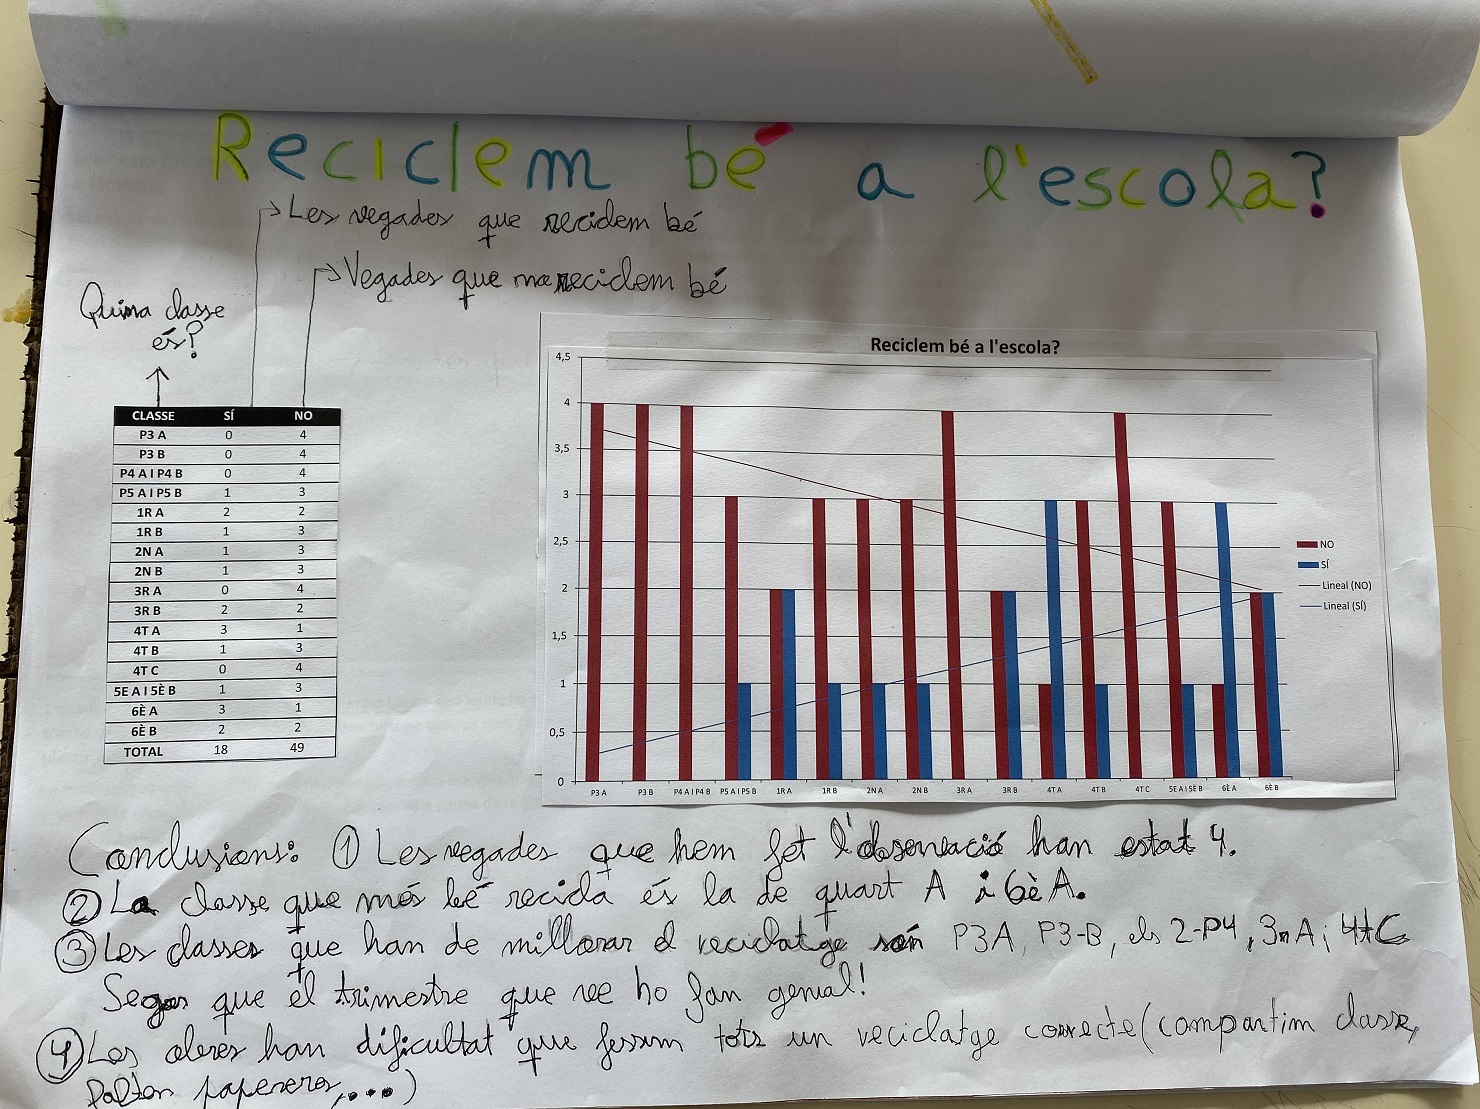 Reciclem bé a l'escola?
Les vegades que reciclem bé
Vegades que no reciclem bé
Quina classe
és?
CLASSE SÍ NO
P3 A 0 4
P3 B 0 4
P4 A I P4 B 0 4
P5 A I P5 B 1 3
1R A 2 2
1R B 1 3
2N A 1 3
2N B 1 3
3R A 0 4
3R B 2 2
4T A 3 1
4T B 1 3
4T C 0 4
5E A I 5È B 1 3
6È A 3 1
6È B 2 2
TOTAL 18 49
Reciclem bé a l'escola?
4,5
4
3,5
3
2,5
2
1,5
1
0,5
0
P3 A P3 B P4 A I P4 B P5 A I P5 B 1R A 1R B 2N A 2N B 3R A 3R B 4T A 4T B 4T C 5E A I 5È B 6È A 6È B
NO
SÍ
Lineal (NO)
Lineal (SÍ)
Conclusions: ① Les vegades que hem fet l'observació han estat 4.
② La classe que més bé recicla és la de quart A i 6è A.
③ Les classes que han de millorar el reciclatge són P3A, P3-B, els 2-P4, 3r A i 4t C
Segur que el trimestre que ve ho fan genial!
④ Les obres han dificultat que fessim tots un reciclatge correcte (compartim classe,
falten papereres,...)